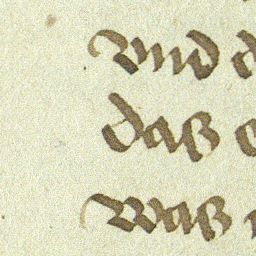 Vnd d
daß e
Waß